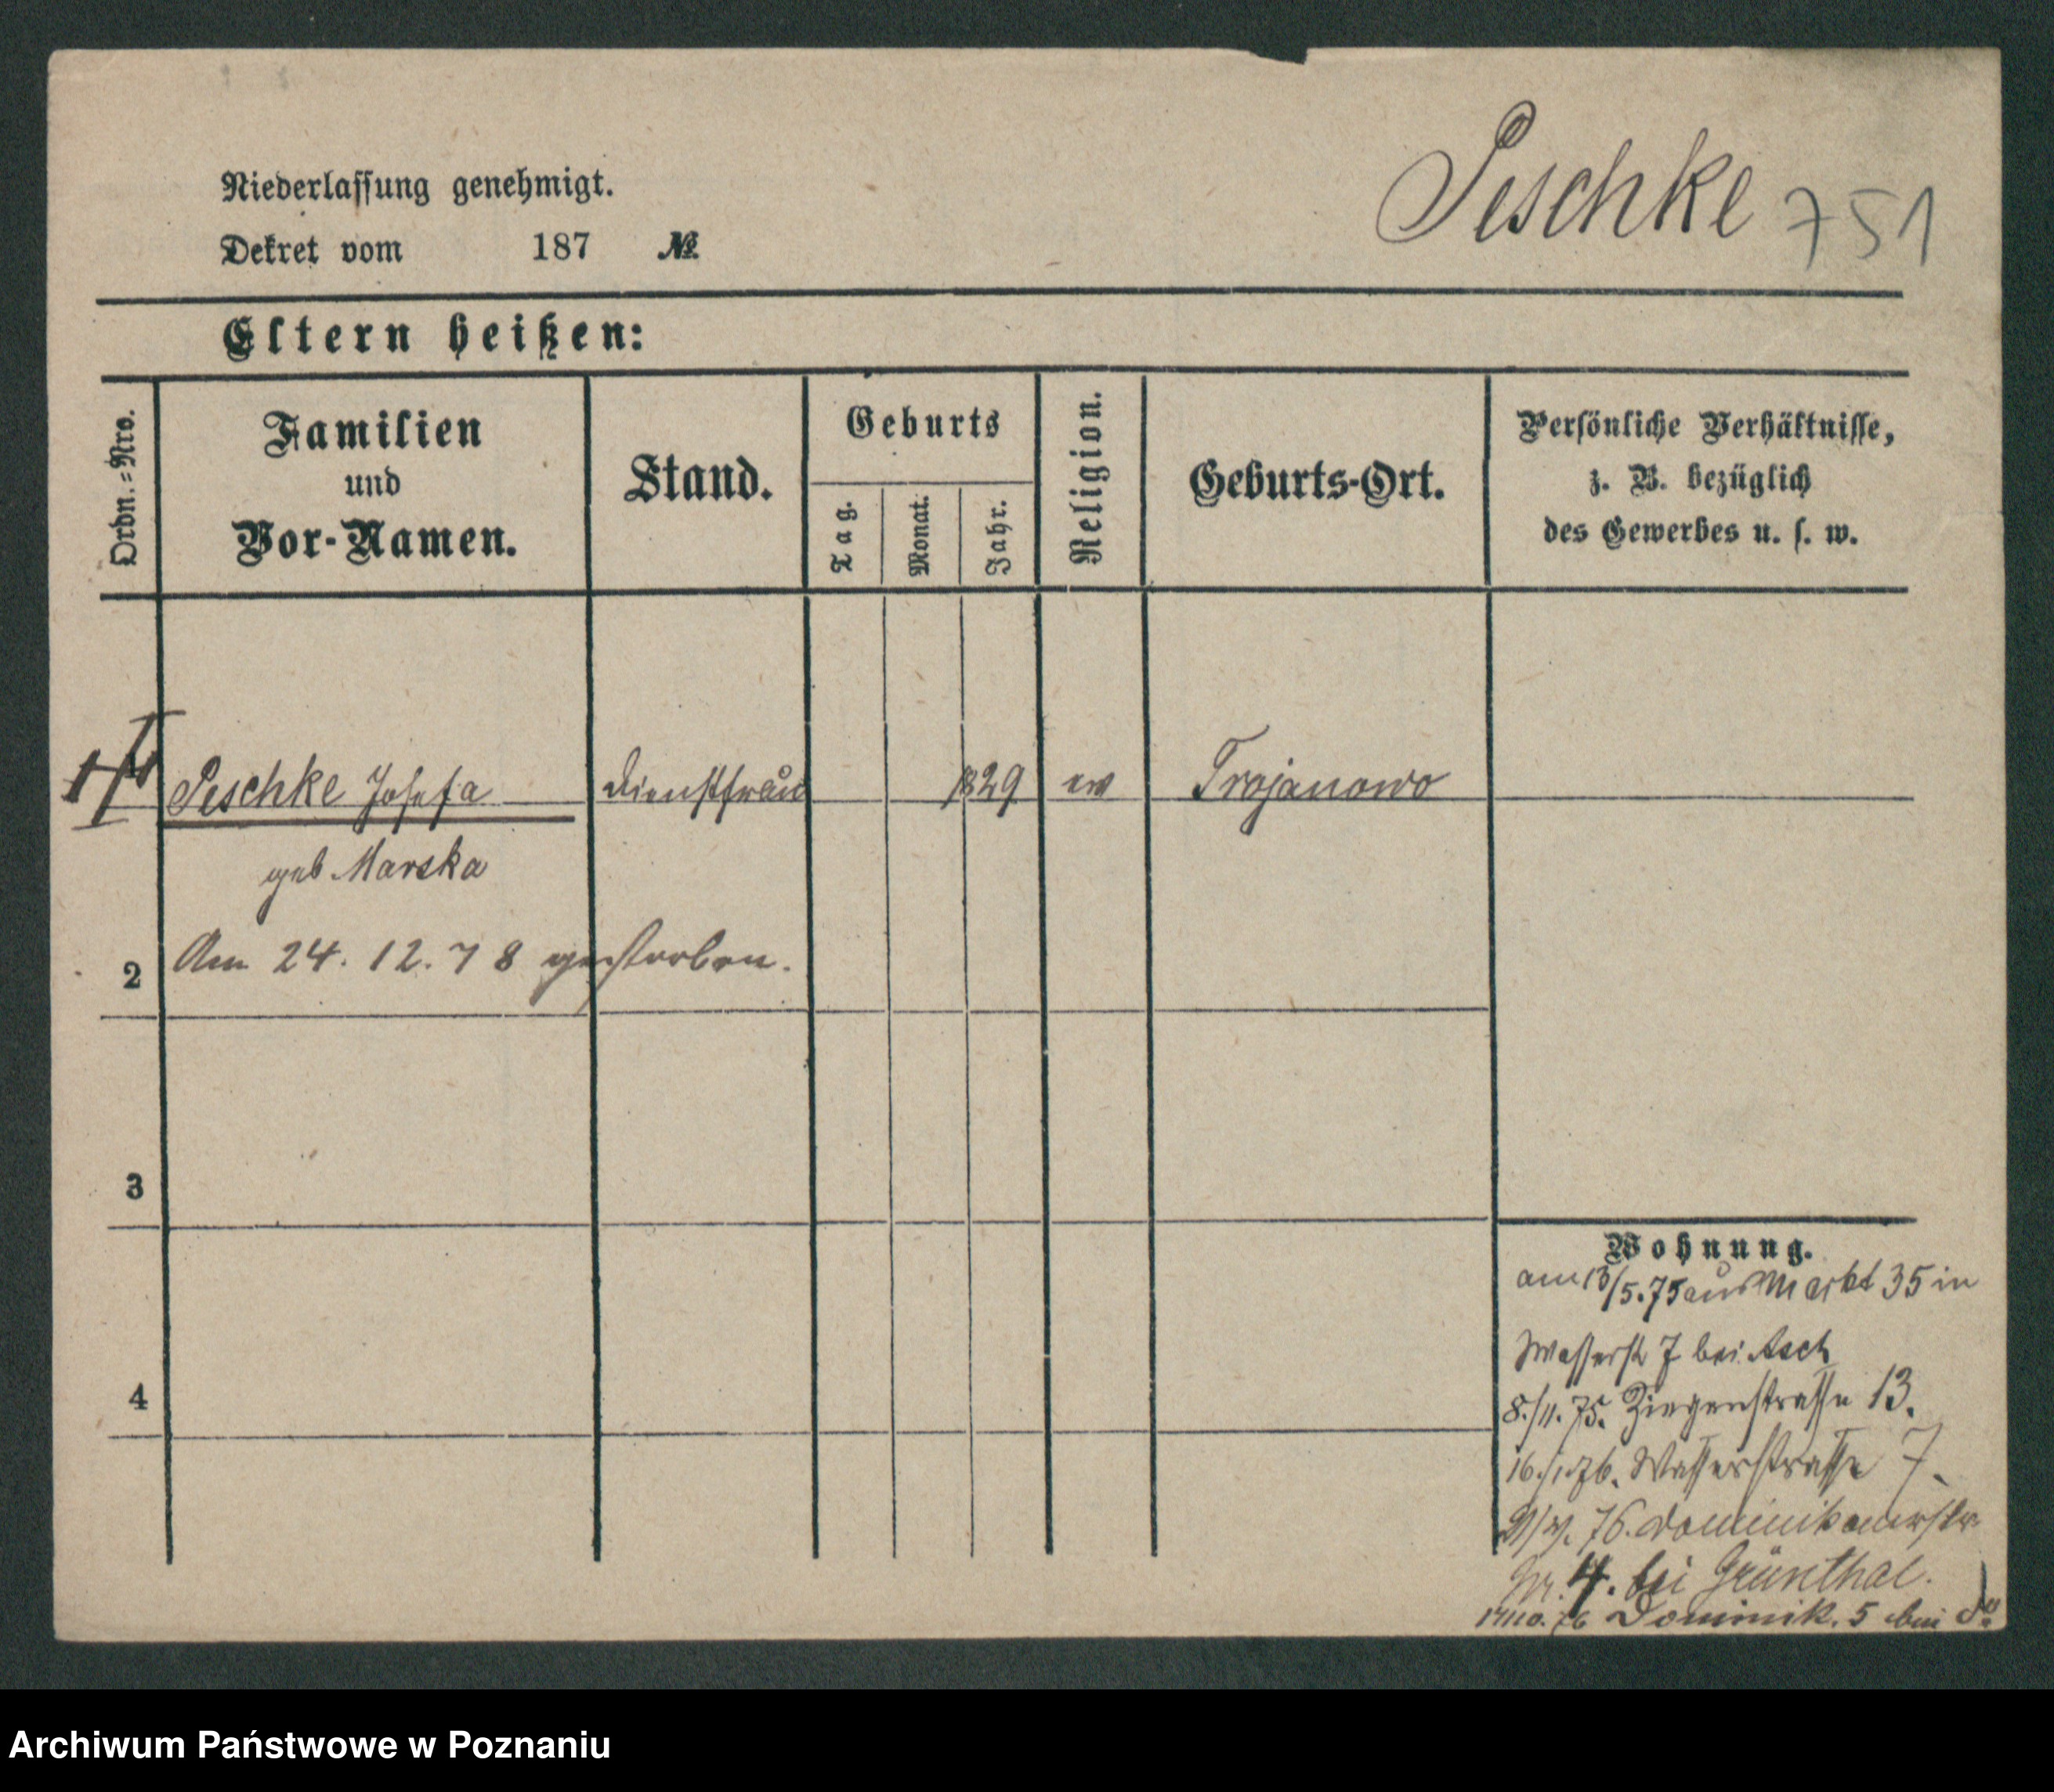 Peschke 751
Niederlassung genehmigt.
Dekret vom 187 №
Eltern heißen:
Ordn.-Nro.
Familien
und
Vor-Namen.
Stand.
Geburts
Tag.
Monat.
Jahr.
Religion.
Geburts-Ort.
Persönliche Verhältnisse,
z. B. bezüglich
des Gewerbes u. s. w.
1 Peschke Josefa Dienstfrau 1829 ev Trojanowo
geb Marska
2 Am 24. 12. 78 gestorben.
3
Wohnung.
am 13/5. 75 aus Markt 35 in
Wasserstr 7 bei Asch
4
8./11. 75. Ziegenstrasse 13.
16./1. 76. Wasserstrasse 7.
76. Dominikanerstr
Nr. 4. bei Grünthal.
76 Dominik. 5 bei do
Archiwum Państwowe w Poznaniu